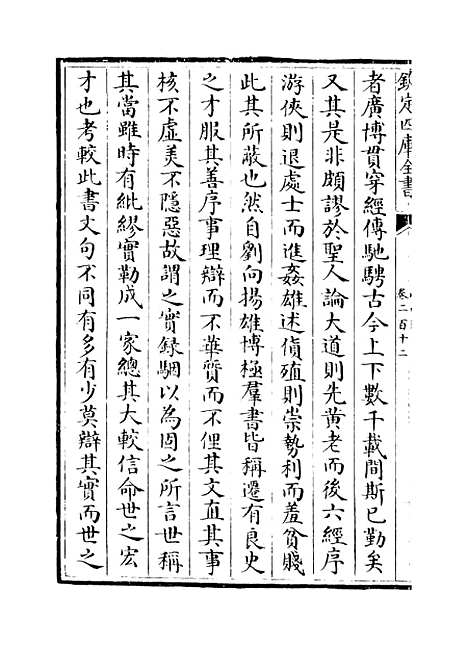 欽定四庫全書
卷二百十二
者廣博貫穿經傳馳騁古今上下數千載間斯已勤矣
又其是非頗謬於聖人論大道則先黄老而後六經序
游俠則退處士而進姦雄述貨殖則崇勢利而羞貧賤
此其所蔽也然自劉向揚雄博極羣書皆稱遷有良史
之才服其善序事理辯而不華質而不俚其文直其事
核不虚美不隱惡故謂之實録駰以為固之所言世稱
其當雖時有紕繆實勒成一家總其大較信命世之宏
才也考較此書文句不同有多有少莫辯其實而世之